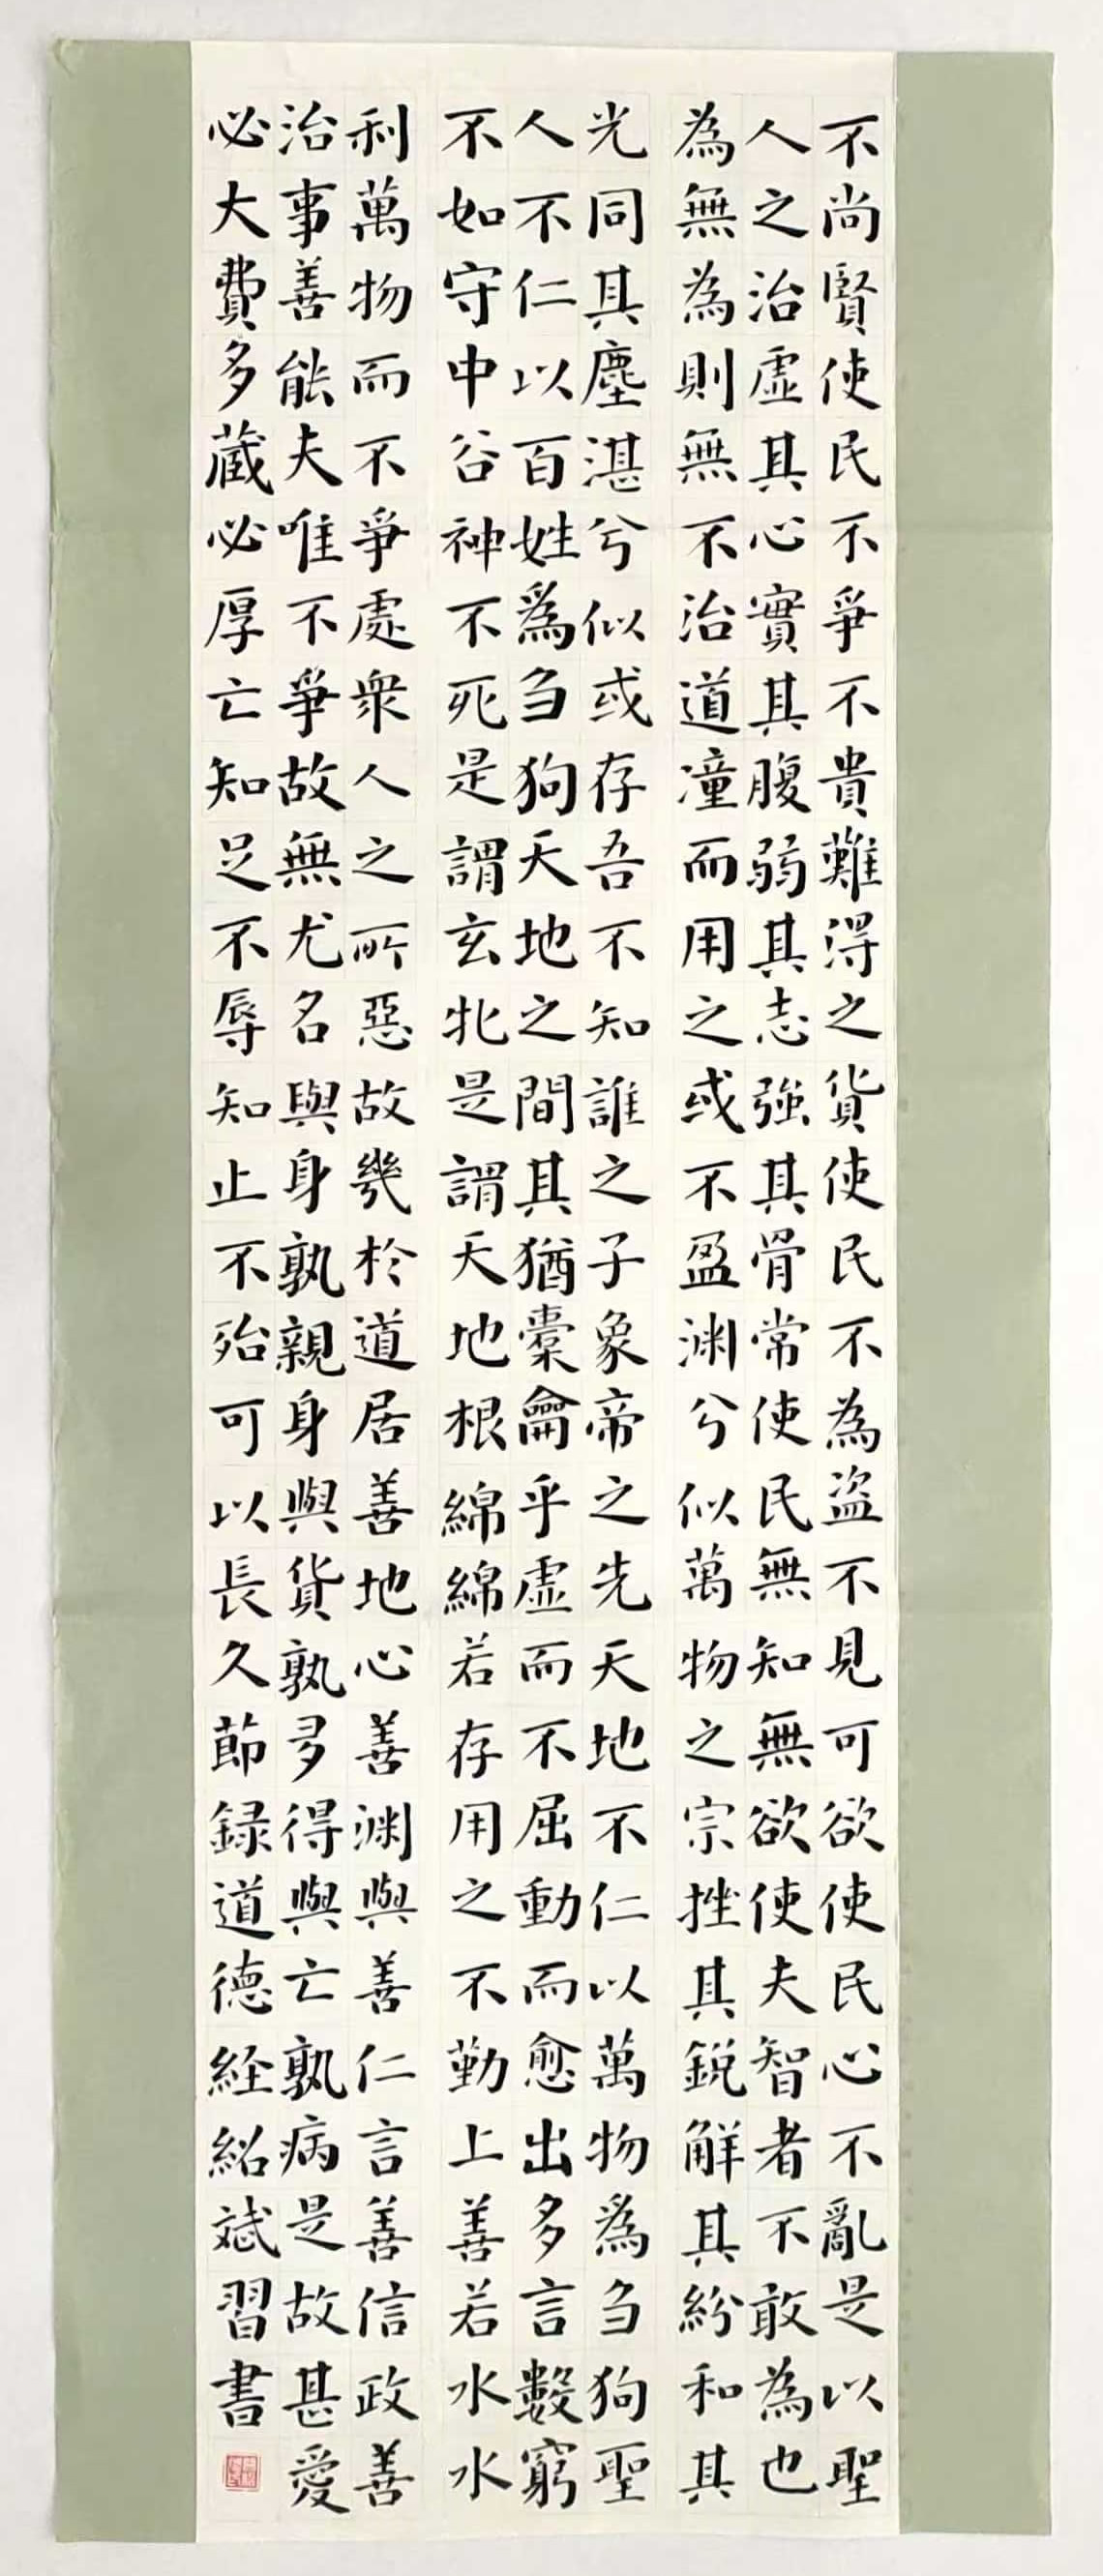 不尚賢使民不爭不貴難得之貨使民不為盜不見可欲使民心不亂是以聖
人之治虛其心實其腹弱其志強其骨常使民無知無欲使夫智者不敢為也
為無為則無不治道漳而用之或不盈渊兮似萬物之宗挫其銳解其紛和其
光同其塵湛兮似或存吾不知誰之子象帝之先天地不仁以萬物為刍狗聖
人不仁以百姓為刍狗天地之間其猶橐龠乎虛而不屈動而愈出多言數窮
不如守中谷神不死是謂玄牝是謂天地根綿綿若存用之不勤上善若水水
利萬物而不爭處衆人之所惡故幾於道居善地心善渊與善仁言善信政善
治事善能夫唯不爭故無尤名與身孰親身與貨孰多得與亡孰病是故甚愛
必大費多藏必厚亡知足不辱知止不殆可以長久節録道德経紹斌習書